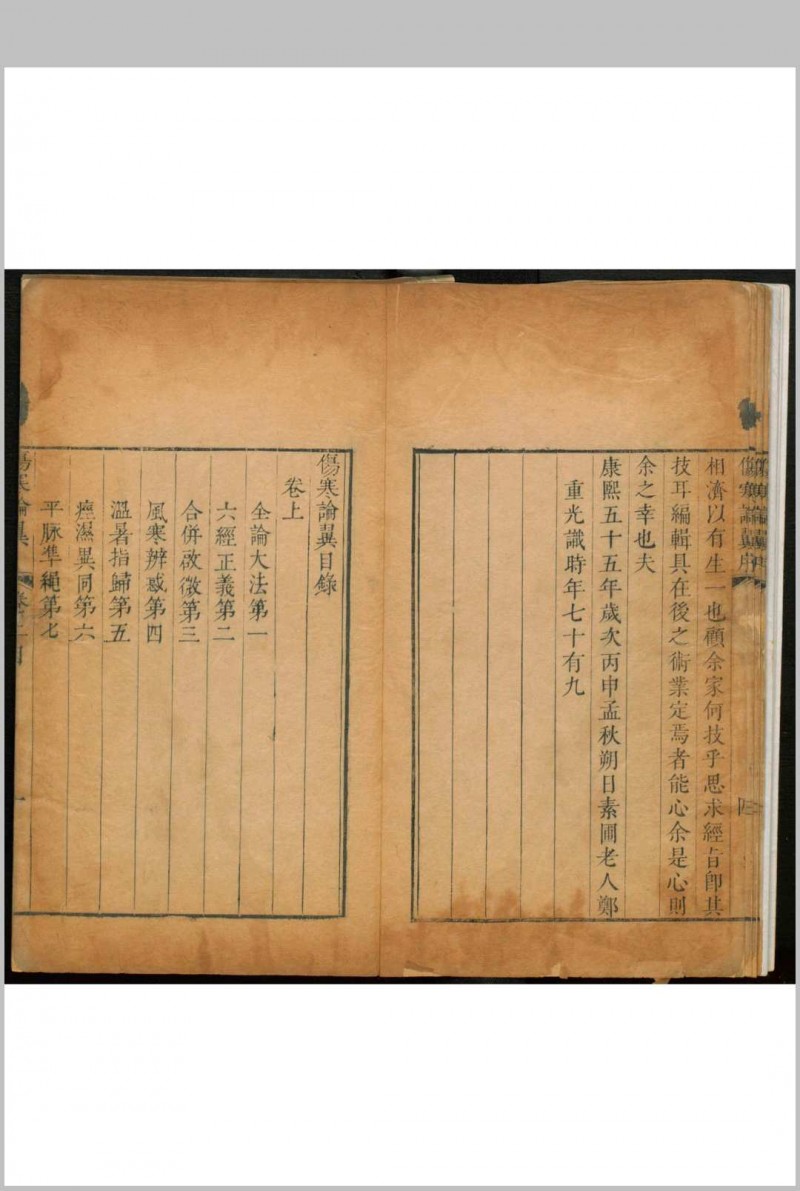 傷寒論翼序
相濟以有生一也顧余家何技乎思求經旨卽其
技耳編輯具在後之術業定焉者能心余是心則
余之幸也夫
康熙五十五年歲次丙申孟秋朔日素圃老人鄭
重光識時年七十有九
傷寒論翼目錄
卷上
全論大法第一
六經正義第二
合併啟微第三
風寒辨惑第四
溫暑指歸第五
痙濕異同第六
平脉準繩第七
傷寒論翼